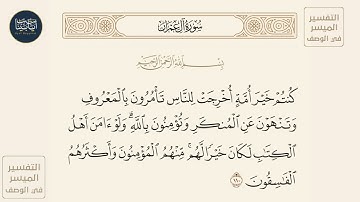 التفسير
الميسر
في الوصف
سورة آل عمران
بسم الله الرحمن الرحيم
كُنتُمْ خَيْرَ أُمَّةٍ أُخْرِجَتْ لِلنَّاسِ تَأْمُرُونَ بِالْمَعْرُوفِ
وَتَنْهَوْنَ عَنِ الْمُنكَرِ وَتُؤْمِنُونَ بِاللَّهِ ۗ وَلَوْ ءَامَنَ أَهْلُ
الْكِتَٰبِ لَكَانَ خَيْرًا لَّهُم ۚ مِّنْهُمُ الْمُؤْمِنُونَ وَأَكْثَرُهُمُ
الْفَٰسِقُونَ ١١٠
التفسير
الميسر
في الوصف